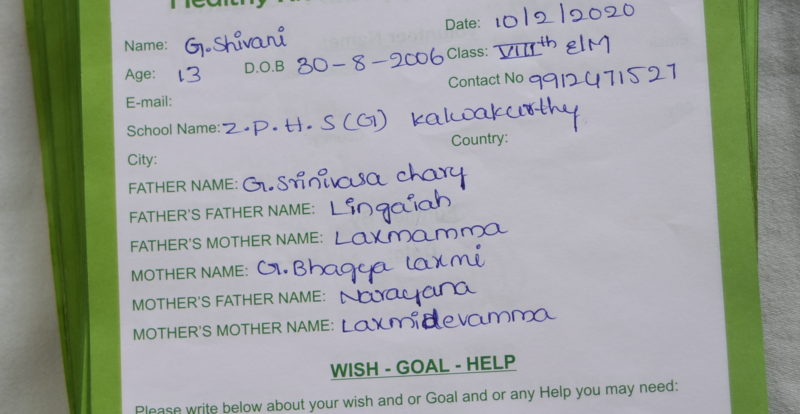 Healthy
Date: 10/2/2020
Name: G.Shivani
Class: VIIIth E/M
Age: 13 D.O.B 30-8-2006
Contact No 9912471527
E-mail:
School Name: Z.P.H.S(G) Kalwakurthy
City: Country:
FATHER NAME: G.Srinivasa chary
FATHER'S FATHER NAME: Lingaiah
FATHER'S MOTHER NAME: Laxmamma
MOTHER NAME: G.Bhagya laxmi
MOTHER'S FATHER NAME: Narayana
MOTHER'S MOTHER NAME: Laxmidevamma
WISH - GOAL - HELP
Please write below about your wish and or Goal and or any Help you may need: